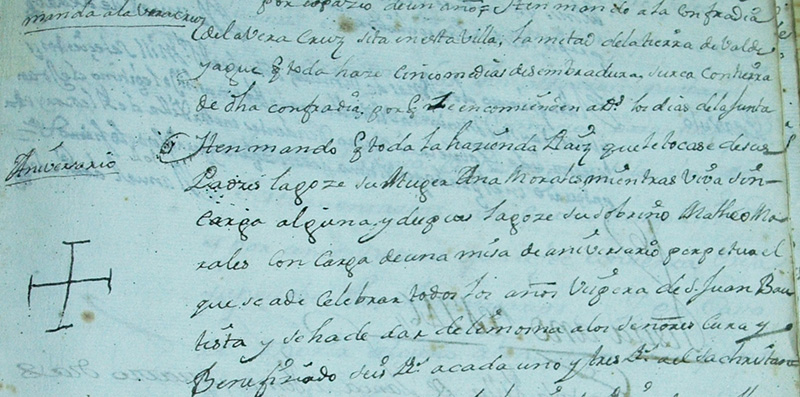 manda ala Veracruz
por espazio de un año = Iten mando a la Confradia
de la Vera Cruz sita en esta Villa, la metad de la tierra de Valde
yaque q toda haze cinco medias desembradura, surca con tierra
de dha confradia, por q me encomienden a Ds. los dias de la Junta
Aniversario
Iten mando q toda la hazienda Raiz que le tocase de sus
Padres lagoze su Muger Ana Morales mientras viva sin
carga alguna, y despues lagoze su sobrino Matheo Mo-
rales con carga de una misa de aniversario perpetua el
que se a de celebrar todos los años Vispera de S. Juan Bau
tista y se ha de dar de limosna a los señores Cura y
Benefiziado seis Rs. a cada uno y tres Rs. a el Sachristan